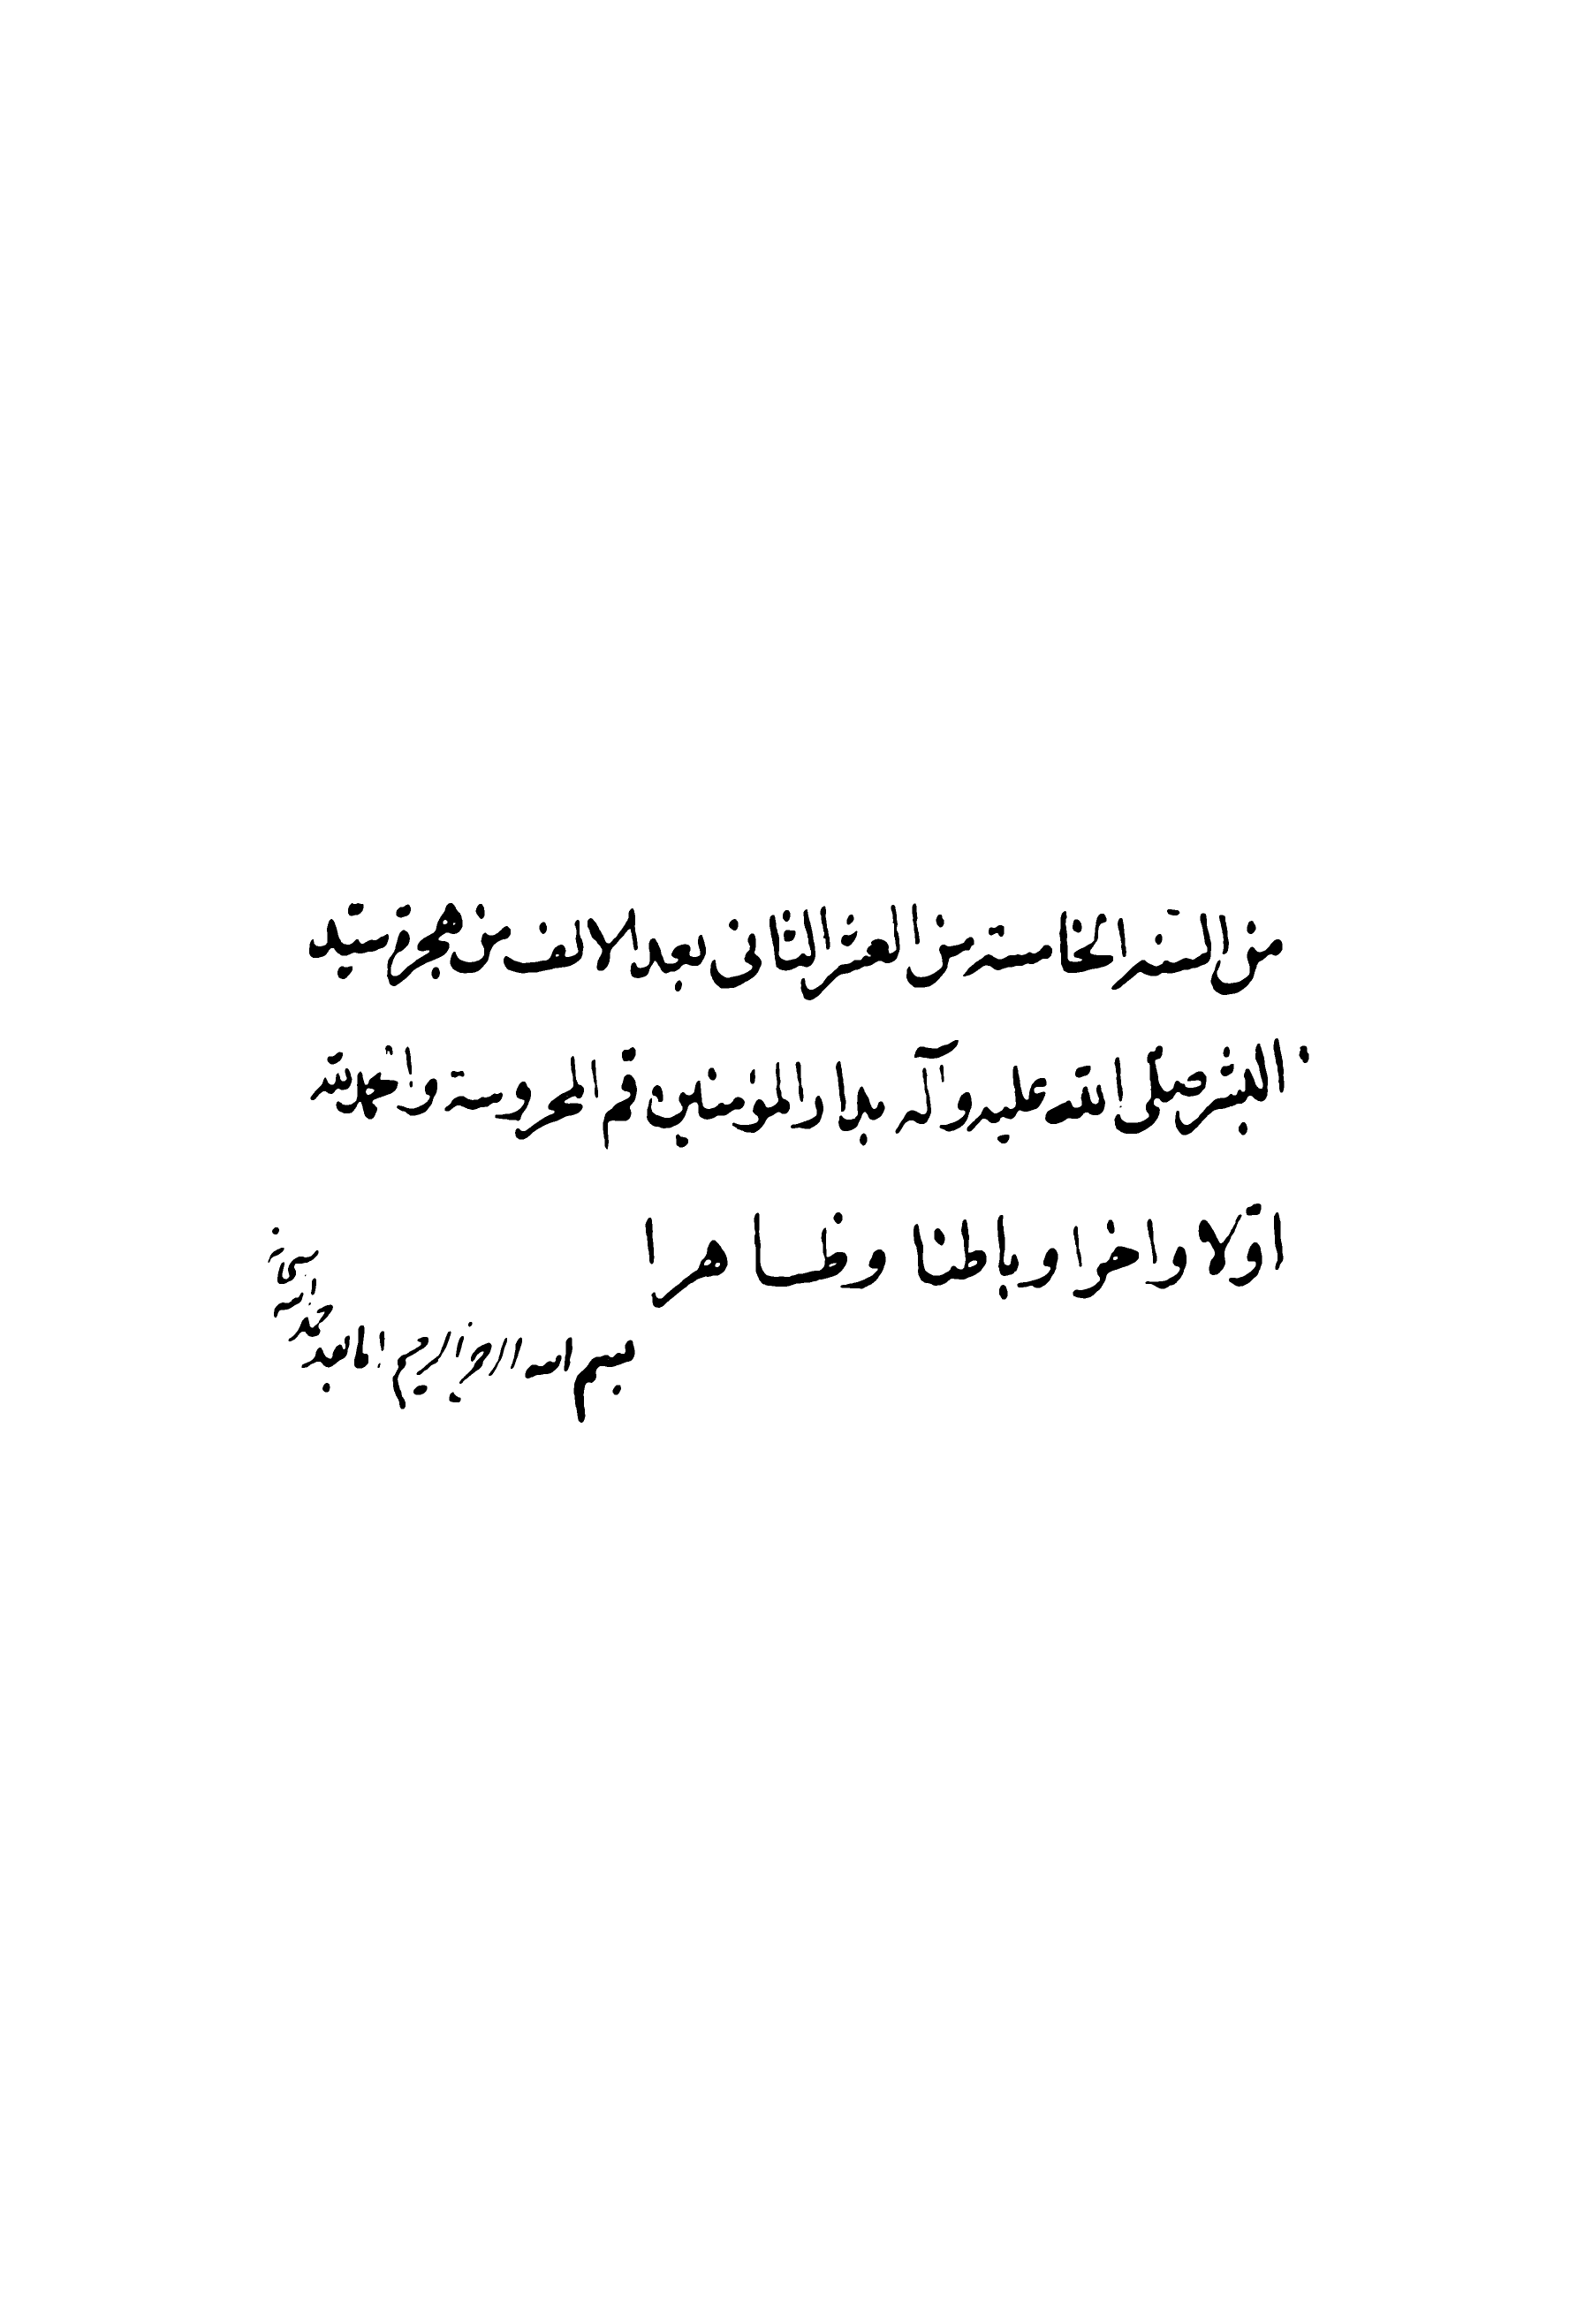 من السنة الخامسة من العشر الثاني بعد الالف من هجرة سيد
النبيين صلى الله عليه وآله بدار المؤمنين قم المحروسة والحمد لله
اوّلا واخرا وباطنا وظاهرا
بسم الله الرحمن الرحيم اما بعد